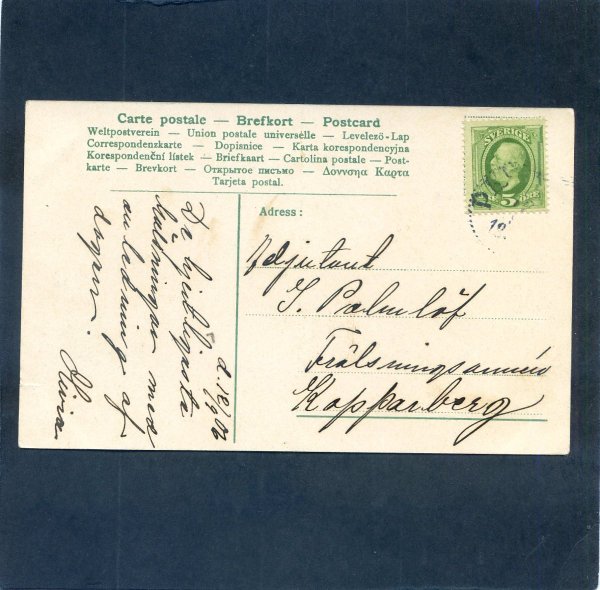 Carte postale — Brefkort — Postcard
Weltpostverein — Union postale universelle — Levelező-Lap
Correspondenzkarte — Dopisnice — Karta korespondencyjna
Korespondenční lístek — Briefkaart — Cartolina postale — Post-
karte — Brevkort — Открытое письмо — Δοννσηα Καρτα
Tarjeta postal.
SVERIGE
5 ÖRE
Adress:
Adjutant
J. Palmlöf
Frälsningsarmén
Kopparberg
d. 18/9 06
De hjertligaste
hälsningar med
anledning af
dagen.